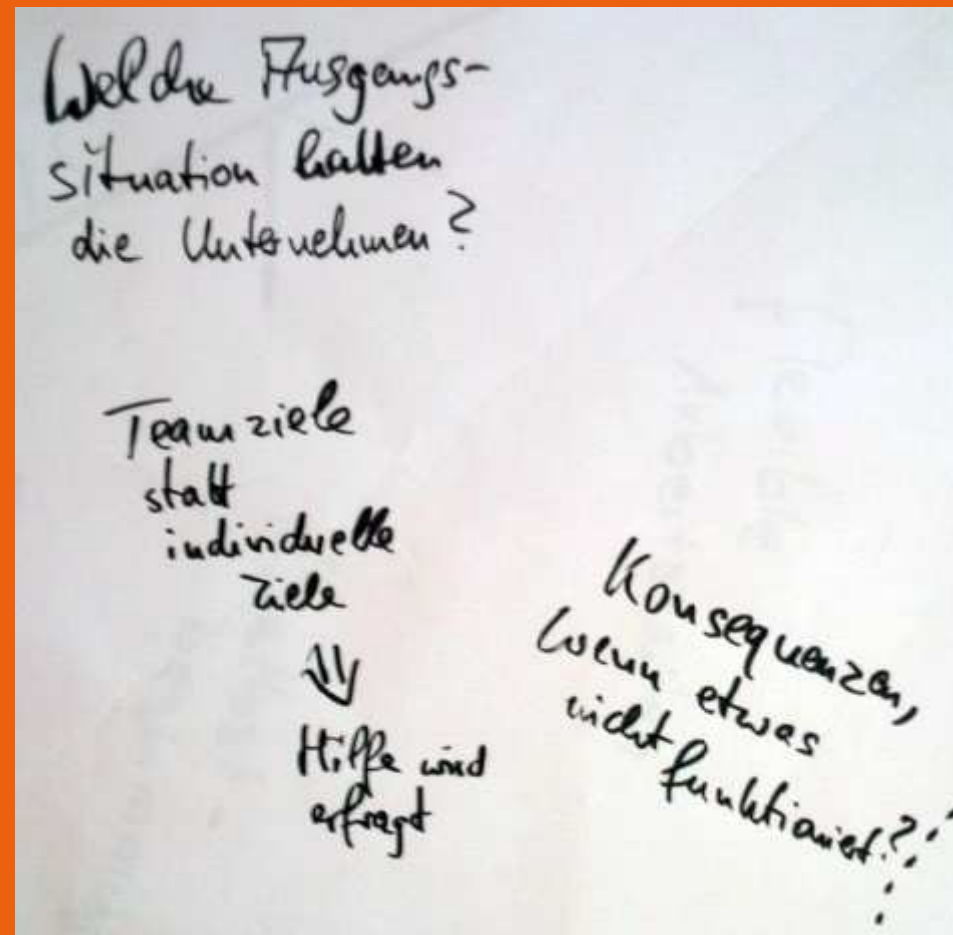 Welche Ausgangs-
situation hatten
die Unternehmen?
Teamziele
statt
individuelle
Ziele
Hilfe wird
erfragt
Konsequenzen,
wenn etwas
nicht funktioniert?!